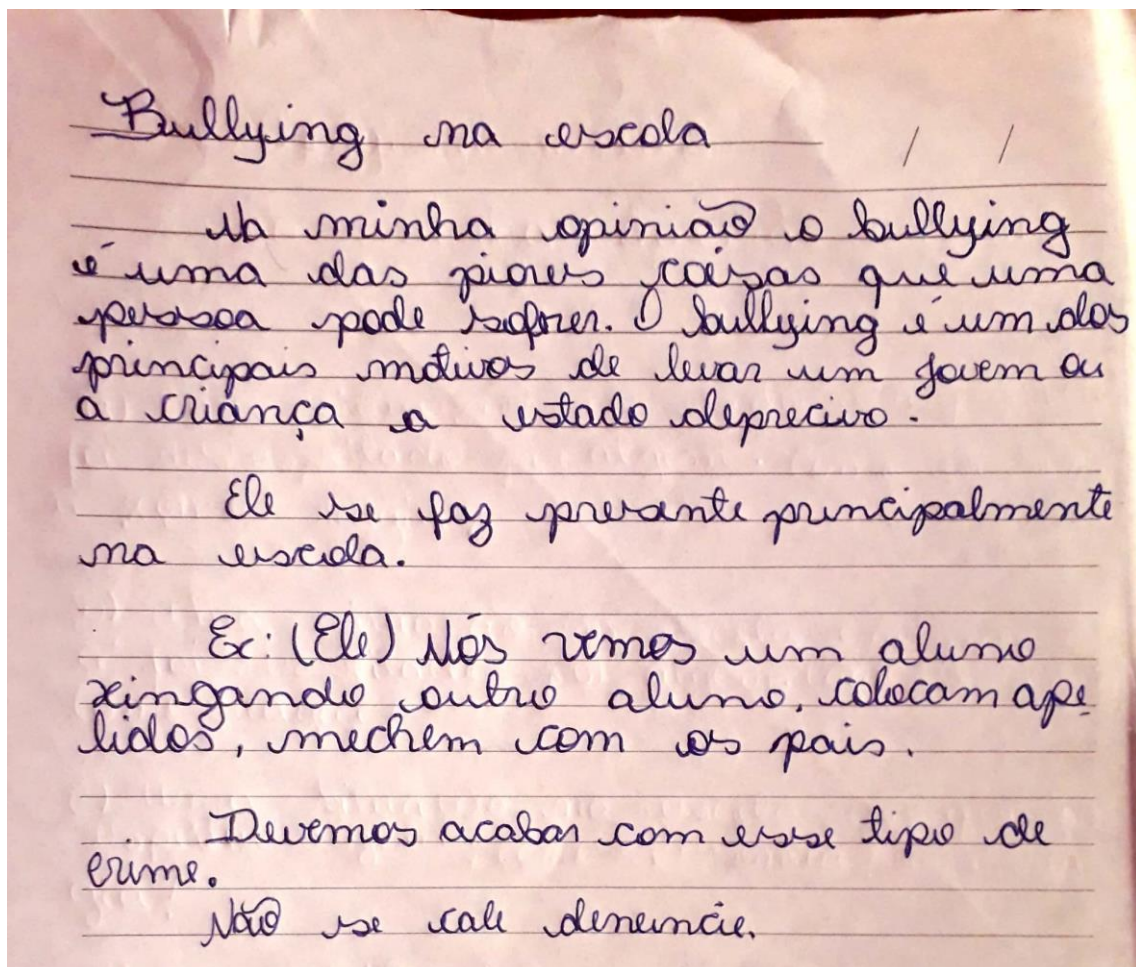 Bullying na escola / /
Na minha opinião o bullying
é uma das piores coisas que uma
pessoa pode sofrer. O bullying é um dos
principais motivos de levar um jovem ou
a criança a estado deprecivo.
Ele se faz presante principalmente
na escola.
Ex: (Ele) Nós vemos um aluno
xingando outro aluno, colocam ape
lidos, mechem com os pais.
Devemos acabar com esse tipo de
crime.
Não se cale denuncie.